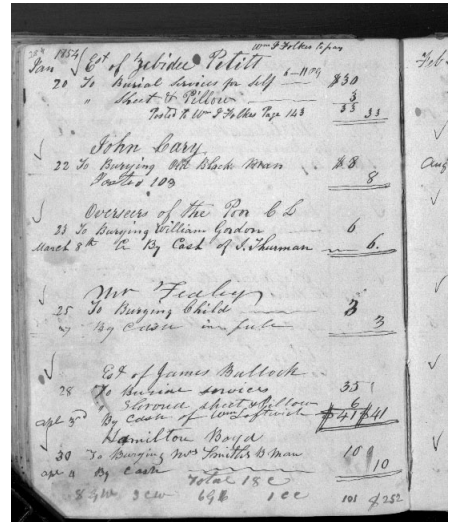 Wm I Folkes to pay
254 1854
Jan Est of Zebidee Petitt
20 To Burial services for self 6-11 $30
" Sheet & Pillow 3
Posted to Wm I Folkes Page 143 33 33
John Cary
22 To Burying Old Black Man $8
Posted 103 8
Overseers of the Poor C L
23 To Burying William Gordon 6
March 8th Cr By Cash of J. Thurman 6.
Mr Fedley
25 To Burying Child 3
" By Cash in full 3
Est of James Bullock
28 To Burial services 35
" Shroud sheet & Pillow 6
Apl 3rd By Cash of Wm Leftwich $41 $41
Hamilton Boyd
30 To Burying Mrs Smiths B Man 10
Apl 4 By Cash 10
Total 18 c
8 gw 3 cw 6 g 1 cc 101 $252
Feb
Aug